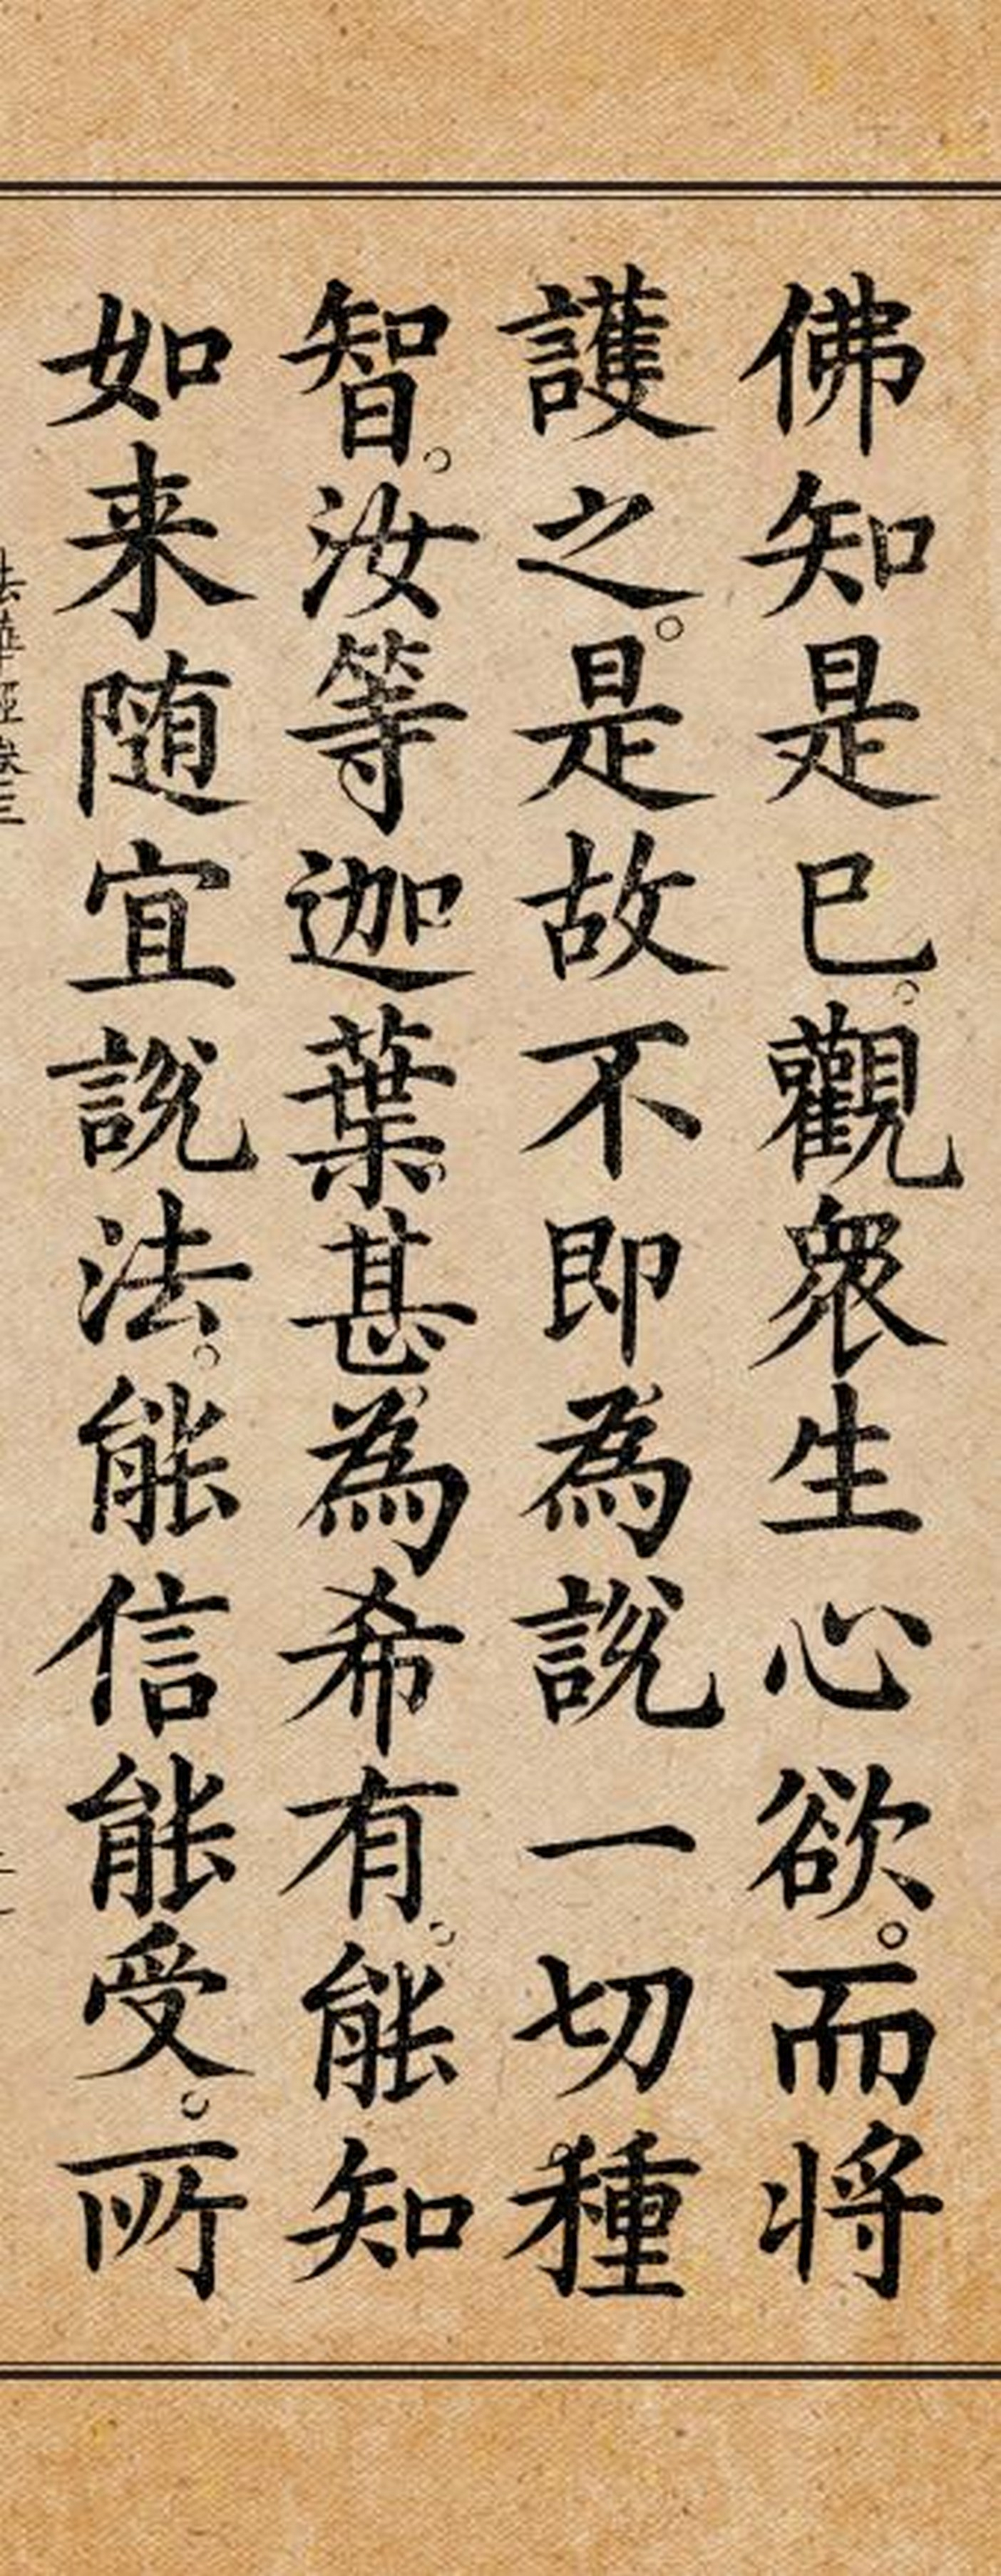 佛知是已。觀衆生心欲。而将
護之。是故不即為說一切種
智。汝等迦葉。甚為希有。能知
如来随宜說法。能信能受。所
法華經卷三